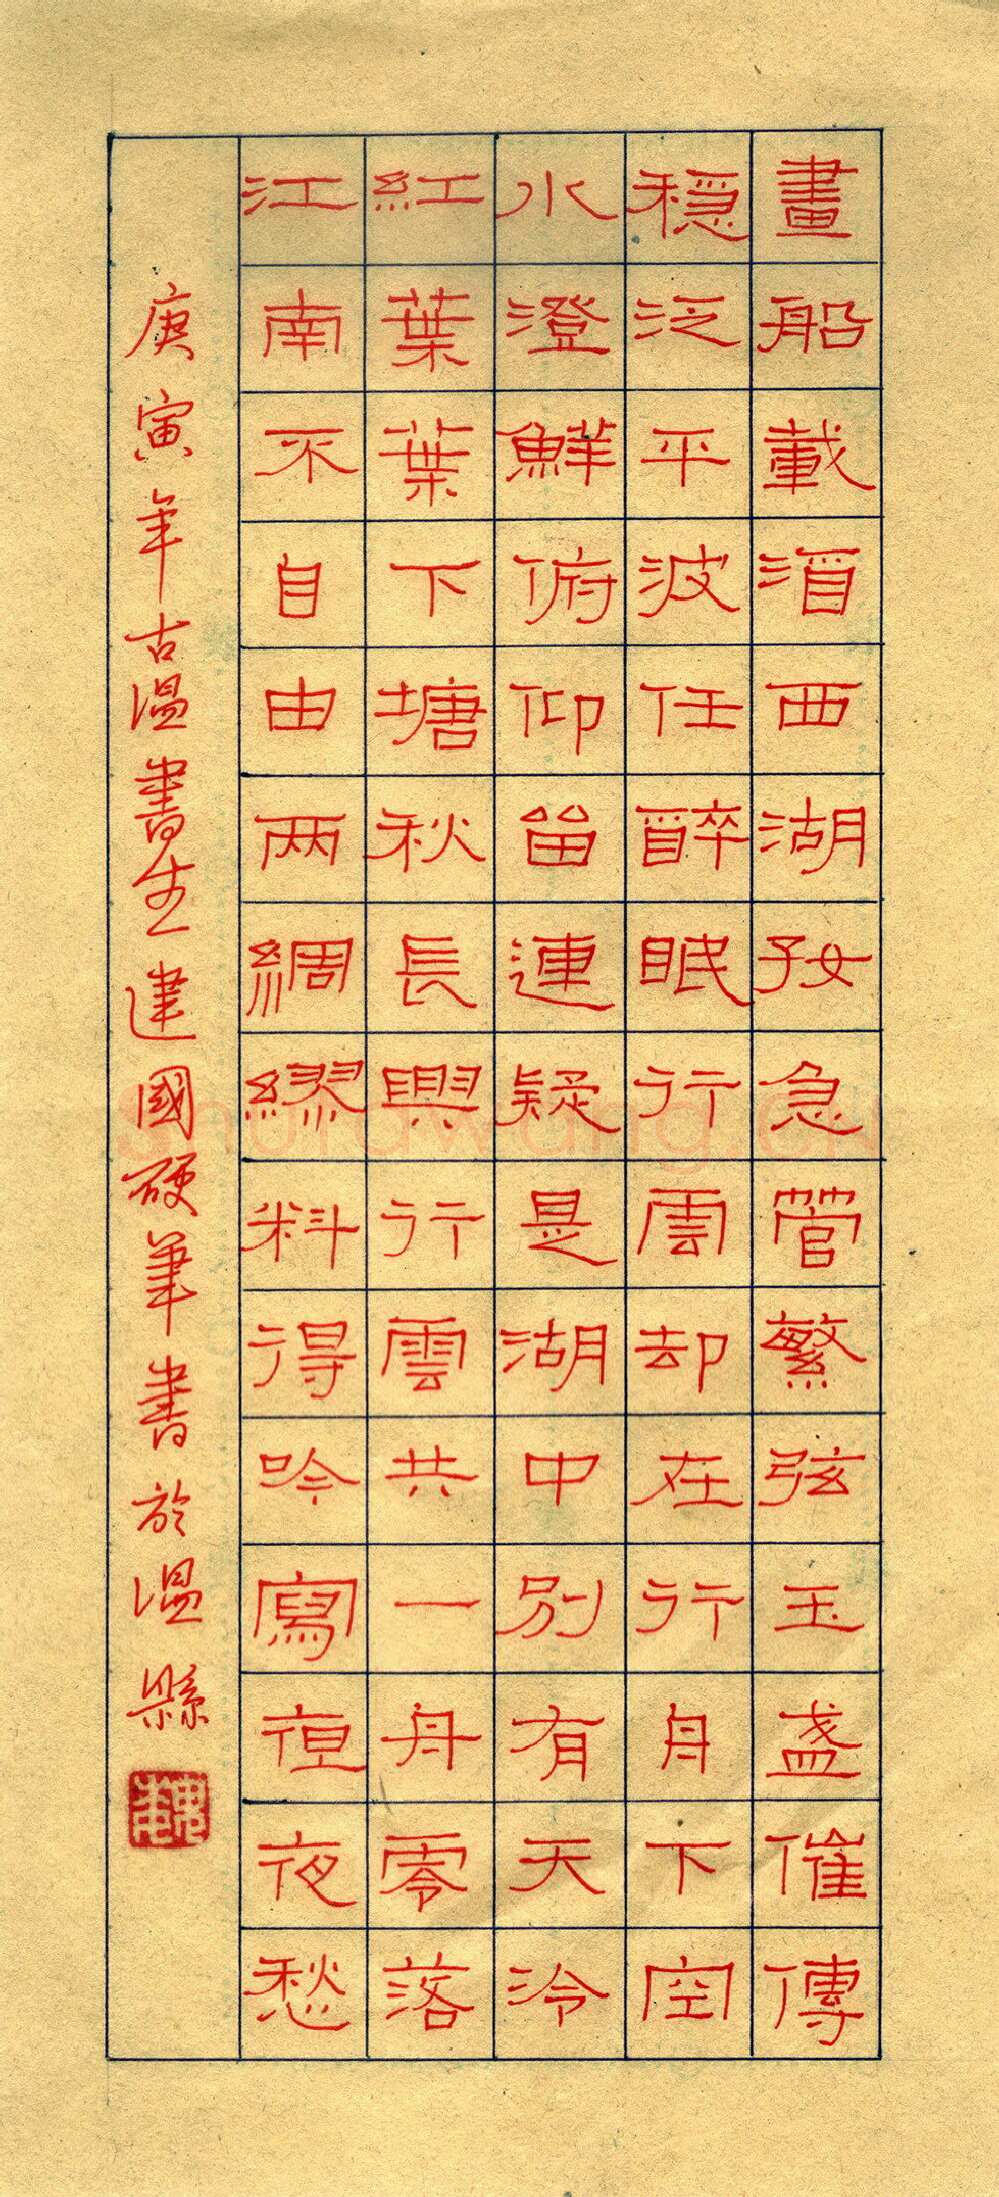 畫船載酒西湖好急管繁弦玉盞催傳
穩泛平波任醉眠行雲却在行舟下空
水澄鮮俯仰留連疑是湖中別有天泠
紅葉葉下塘秋長與行雲共一舟零落
江南不自由兩綢繆料得吟鸞夜夜愁
庚寅年古溫書生建國硬筆書於溫縣